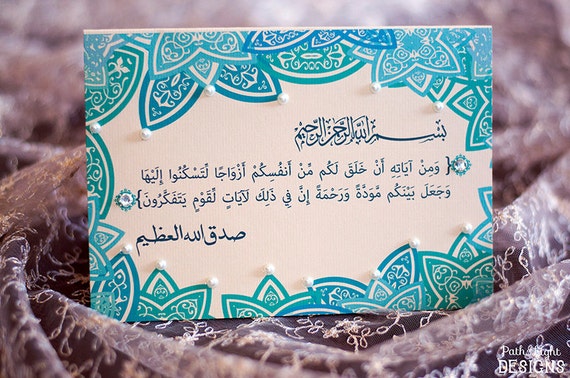 بسم الله الرحمن الرحيم
{ وَمِنْ آيَاتِهِ أَنْ خَلَقَ لَكُم مِّنْ أَنفُسِكُمْ أَزْوَاجًا لِّتَسْكُنُوا إِلَيْهَا
وَجَعَلَ بَيْنَكُم مَّوَدَّةً وَرَحْمَةً إِنَّ فِي ذَلِكَ لَآيَاتٍ لِّقَوْمٍ يَتَفَكَّرُونَ}
صدق الله العظيم
Path Light
DESIGNS